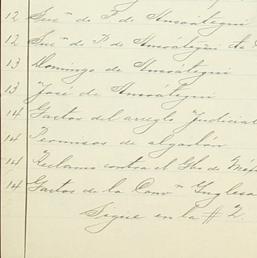 12 Suc.n de P. de Amoátegui
12 Suc.n de P. de Amoátegui
13 Domingo de Amoátegui
13 José de Amoátegui
14 Gastos del arreglo Judicial
14 Permisos de algodón
14 Reclamo contra el Gbo de
14 Gastos de la Conv.n Inglesa
Sigue en la # 2.